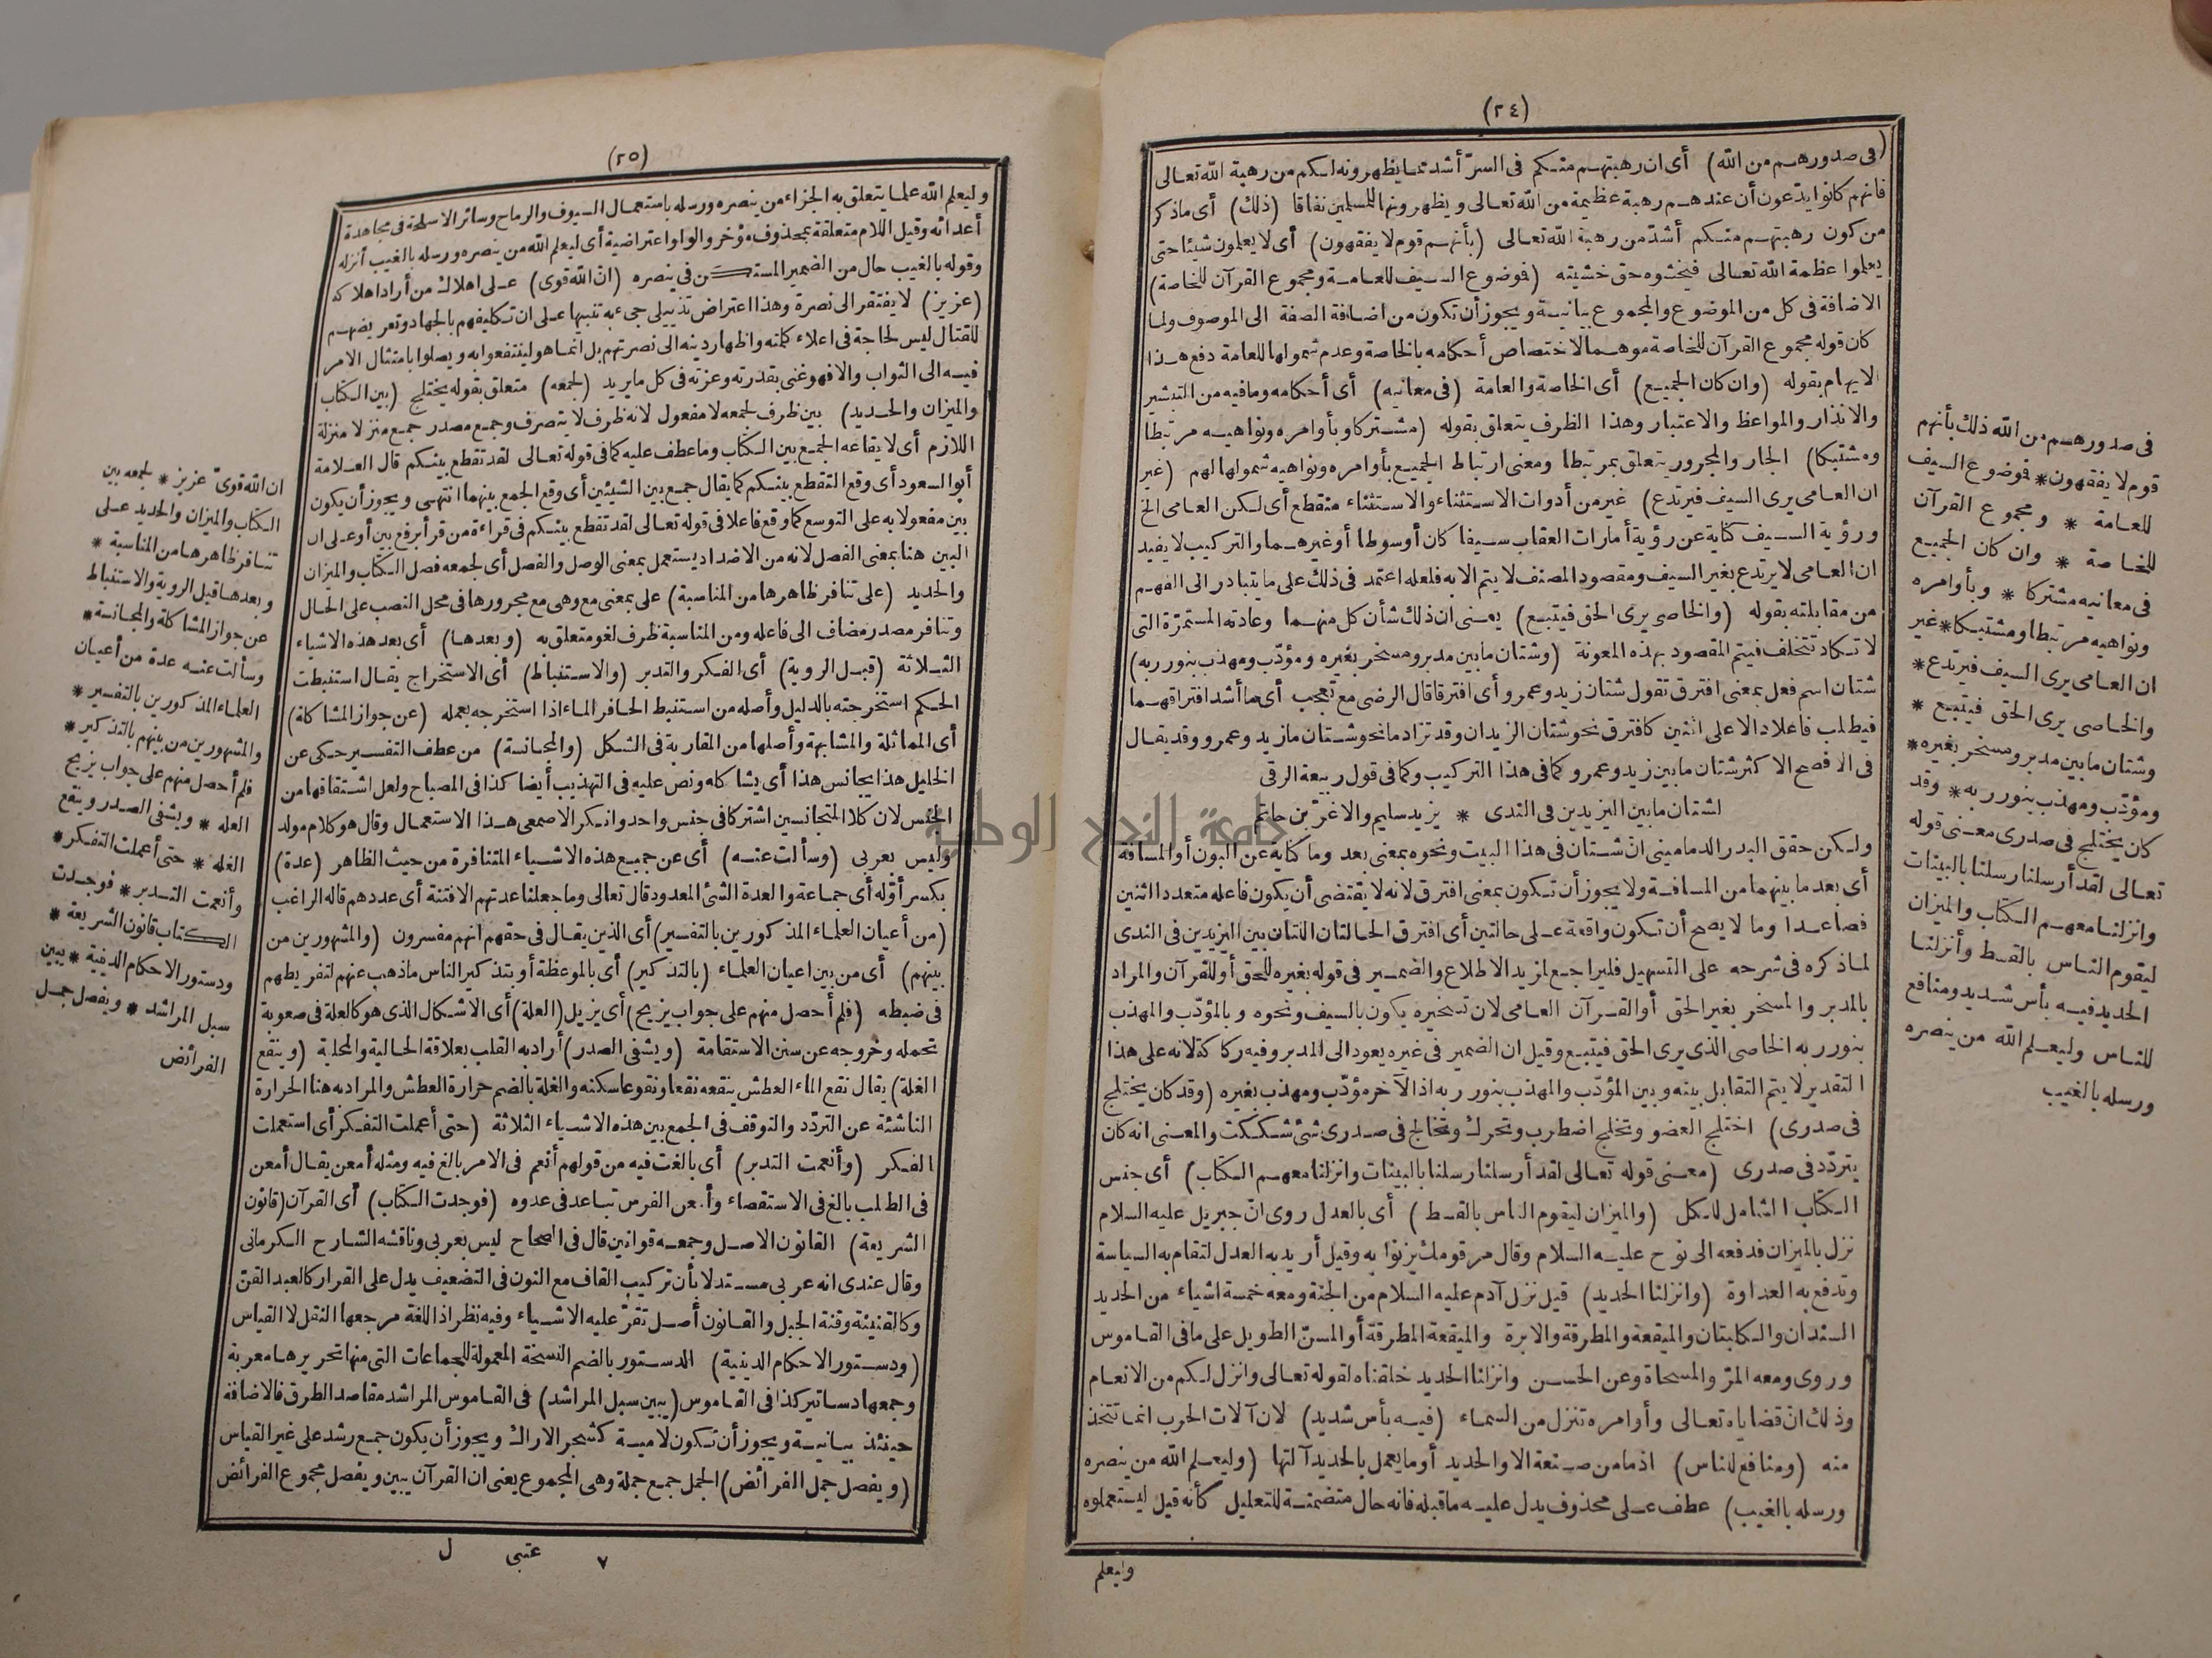 (٢٤)
(فى صدورهم من الله) أى ان رهبتهم منكم فى السرّ أشد مما يظهرونه لكم من رهبة الله تعالى
فانهم كانوا يدّعون أن عندهم رهبة عظيمة من الله تعالى ويظهرونها للمسلمين نفاقا (ذلك) أى ماذكر
من كون رهبتهم منكم أشدّ من رهبة الله تعالى (بأنهم قوم لا يفقهون) أى لا يعلمون شيئا حتى
يعلموا عظمة الله تعالى فيخشوه حق خشيته (فوضوع السيف للعامة ومجموع القرآن للخاصة)
الاضافة فى كل من الموضوع والمجموع بيانية ويجوز أن تكون من اضافة الصفة الى الموصوف ولما
كان قوله مجموع القرآن للخاصة موهما لاختصاص أحكامه بالخاصة وعدم شمولها للعامة دفع هذا
الايهام بقوله (وان كان الجميع) أى الخاصة والعامة (فى معانيه) أى أحكامه ومافيه من التبشير
والانذار والمواعظ والاعتبار وهذا الظرف يتعلق بقوله (مشتركا وبأوامره ونواهيه مرتبطا
ومشتبكا) الجار والمجرور يتعلق بمرتبطا ومعنى ارتباط الجميع بأوامره ونواهيه شمولها لهم (غير
ان العامى يرى السيف فيرتدع) غير من أدوات الاستثناء والاستثناء منقطع أى لكن العامى الخ
ورؤية السيف كناية عن رؤية أمارات العقاب سيفا كان أوسوطا أوغيرهما والتركيب لا يفيد
ان العامى لا يرتدع بغير السيف ومقصود المصنف لا يتم الا به فلعله اعتمد فى ذلك على ما يتبادر الى الفهم
من مقابلته بقوله (والخاصى يرى الحق فيتبع) يعنى ان ذلك شأن كل منهما وعادته المستمرّة التى
لا تكاد تتخلف فيتم المقصود بهذه المعونة (وشتان مابين مدبر ومسخر بغيره ومؤدّب ومهذب بنور ربه)
شتان اسم فعل بمعنى افترق تقول شتان زيد وعمرو أى افترقا قال الرضى مع تعجب أى ما أشد افتراقهما
فيطلب فاعلا دالا على اثنين كافترق نحو شتان الزيدان وقد تزاد ما نحو شتان مازيد وعمرو وقد يقال
فى الافصح الاكثر شتان مابين زيد وعمرو كما فى هذا التركيب وكما فى قول ربيعة الرقى
لشتان مابين اليزيدين فى الندى * يزيد سليم والاغرّ بن حاتم
ولكن حقق البدر الدمامينى انّ شتان فى هذا البيت ونحوه بمعنى بعد وما كناية عن البون أو المسافة
أى بعد ما بينهما من المسافة ولا يجوز أن تكون بمعنى افترق لانه لا يقتضى أن يكون فاعله متعددا اثنين
فصاعدا وما لا يصح أن تكون واقعة على حالتين أى افترق الحالتان اللتان بين اليزيدين فى الندى
لماذكره فى شرحه على التسهيل فليراجع لمزيد الاطلاع والضمير فى قوله بغيره للحق أو للقرآن والمراد
بالمدبر والمسخر بغير الحق أوالقرآن العامى لان تسخيره يكون بالسيف ونحوه وبالمؤدّب والمهذب
بنور ربه الخاصى الذى يرى الحق فيتبع وقيل ان الضمير فى غيره يعود الى المدبر وفيه ركاكة لانه على هذا
التقدير لا يتم التقابل بينه وبين المؤدّب والمهذب بنور ربه اذ الآخر مؤدّب ومهذب بغيره (وقد كان يختلج
فى صدرى) اختلج العضو وتخلج اضطرب وتحرك وتخالج فى صدرى شئ شككت والمعنى انه كان
يتردّد فى صدرى (معنى قوله تعالى لقد أرسلنا رسلنا بالبينات وانزلنا معهم الكتاب) أى جنس
الكتاب الشامل للكل (والميزان ليقوم الناس بالقسط) أى بالعدل روى انّ جبريل عليه السلام
نزل بالميزان فدفعه الى نوح عليه السلام وقال مر قومك يزنوا به وقيل أريد به العدل لتقام به السياسة
وتدفع به العداوة (وانزلنا الحديد) قيل نزل آدم عليه السلام من الجنة ومعه خمسة اشياء من الحديد
السندان والكلبتان والميقعة والمطرقة والابرة والميقعة المطرقة أو المسنّ الطويل على مافى القاموس
وروى ومعه المرّ والمسحاة وعن الحسن وانزلنا الحديد خلقناه لقوله تعالى وانزل لكم من الانعام
وذلك انّ قضاياه تعالى وأوامره تنزل من السماء (فيه بأس شديد) لان آلات الحرب انما تتخذ
منه (ومنافع للناس) اذمامن صنعة الا والحديد أو مايعمل بالحديد آلتها (وليعلم الله من ينصره
ورسله بالغيب) عطف على محذوف يدل عليه ماقبله فانه حال متضمنة للتعليل كأنه قيل ليستعملوه
وليعلم
فى صدورهم من الله ذلك بأنهم
قوم لا يفقهون* فوضوع السيف
للعامة * ومجموع القرآن
للخاصة * وان كان الجميع
فى معانيه مشتركا * وبأوامره
ونواهيه مرتبطا ومشتبكا* غير
ان العامى يرى السيف فيرتدع*
والخاصى يرى الحق فيتبع *
وشتان مابين مدبر ومسخر بغيره*
ومؤدّب ومهذب بنور ربه* وقد
كان يختلج فى صدرى معنى قوله
تعالى لقد أرسلنا رسلنا بالبينات
وانزلنا معهم الكتاب والميزان
ليقوم الناس بالقسط وأنزلنا
الحديد فيه بأس شديد ومنافع
للناس وليعلم الله من ينصره
ورسله بالغيب
(٢٥)
وليعلم الله علما يتعلق به الجزاء من ينصره ورسله باستعمال السيوف والرماح وسائر الاسلحة فى مجاهدة
أعدائه وقيل اللام متعلقة بمحذوف مؤخر والواو اعتراضية أى ليعلم الله من ينصره ورسله بالغيب أنزله
وقوله بالغيب حال من الضمير المستكن فى ينصره (انّ الله قوى) على اهلاك من أراد اهلاكه
(عزيز) لا يفتقر الى نصرة وهذا اعتراض تذييلى جىء به تنبيها على ان تكليفهم بالجهاد وتعريضهم
للقتال ليس لحاجة فى اعلاء كلمته واظهار دينه الى نصرتهم بل انما هو لينتفعوا به ويصلوا بامتثال الامر
فيه الى الثواب والا فهو غنى بقدرته وعزته فى كل مايريد (لجمعه) متعلق بقوله يختلج (بين الكتاب
والميزان والحديد) بين ظرف لجمعه لا مفعول لانه ظرف لا يتصرف وجمع مصدر جمع منزلا منزلة
اللازم أى لايقاعه الجمع بين الكتاب وماعطف عليه كما فى قوله تعالى لقد تقطع بينكم قال العلامة
أبو السعود أى وقع التقطع بينكم كما يقال جمع بين الشيئين أى وقع الجمع بينهما انتهى ويجوز أن يكون
بين مفعولا به على التوسع كما وقع فاعلا فى قوله تعالى لقد تقطع بينكم فى قراءة من قرأ برفع بين أو على ان
البين هنا بمعنى الفصل لانه من الاضداد يستعمل بمعنى الوصل والفصل أى لجمعه فصل الكتاب والميزان
والحديد (على تنافر ظاهرها من المناسبة) على بمعنى مع وهى مع مجرورها فى محل النصب على الحال
وتنافر مصدر مضاف الى فاعله ومن المناسبة ظرف لغو متعلق به (وبعدها) أى بعد هذه الاشياء
الثلاثة (قبل الروية) أى الفكر والتدبر (والاستنباط) أى الاستخراج يقال استنبطت
الحكم استخرجته بالدليل وأصله من استنبط الحافر الماء اذا استخرجه بعمله (عن جواز المشاكلة)
أى المماثلة والمشابهة وأصلها من المقاربة فى الشكل (والمجانسة) من عطف التفسير حكى عن
الخليل هذا يجانس هذا أى يشاكله ونص عليه فى التهذيب أيضا كذا فى المصباح ولعل اشتقاقها من
الجنس لان كلا المتجانسين اشتركا فى جنس واحد وانكر الاصمعى هذا الاستعمال وقال هو كلام مولد
وليس بعربى (وسألت عنه) أى عن جميع هذه الاشياء المتنافرة من حيث الظاهر (عدة)
بكسر أوّله أى جماعة والعدة الشئ المعدود قال تعالى وما جعلنا عدتهم الا فتنة أى عددهم قاله الراغب
(من أعيان العلماء المذكورين بالتفسير) أى الذين يقال فى حقهم انهم مفسرون (والمشهورين من
بينهم) أى من بين اعيان العلماء (بالتذكير) أى بالموعظة أو بتذكير الناس ماذهب عنهم لتفريطهم
فى ضبطه (فلم أحصل منهم على جواب يزيح) أى يزيل (العلة) أى الاشكال الذى هو كالعلة فى صعوبة
تحمله وخروجه عن سنن الاستقامة (ويشفى الصدر) أراد به القلب بعلاقة الحالية والمحلية (وينقع
الغلة) يقال نقع الماء العطش ينقعه نقعا ونقوعا سكنه والغلة بالضم حرارة العطش والمراد به هنا الحرارة
الناشئة عن التردّد والتوقف فى الجمع بين هذه الاشياء الثلاثة (حتى أعملت التفكر) أى استعملت
الفكر (وأنعمت التدبر) أى بالغت فيه من قولهم أنعم فى الامر بالغ فيه ومثله أمعن يقال أمعن
فى الطلب بالغ فى الاستقصاء وأمعن الفرس تباعد فى عدوه (فوجدت الكتاب) أى القرآن (قانون
الشريعة) القانون الاصل وجمعه قوانين قال فى الصحاح ليس بعربى وناقشه الشارح الكرمانى
وقال عندى انه عربى مستدلا بأن تركيب القاف مع النون فى التضعيف يدل على القرار كالعبد القنّ
وكالقنينة وقنة الجبل والقانون أصل تقرّ عليه الاشياء وفيه نظر اذ اللغة مرجعها النقل لا القياس
(ودستور الاحكام الدينية) الدستور بالضم النسخة المعمولة للجماعات التى منها تحريرها معربة
وجمعها دساتير كذا فى القاموس (يبين سبل المراشد) فى القاموس المراشد مقاصد الطرق فالاضافة
حينئذ بيانية ويجوز أن تكون لامية كشجر الاراك ويجوز أن يكون جمع رشد على غير القياس
(ويفصل جمل الفرائض) الجمل جمع جملة وهى المجموع يعنى ان القرآن يبين ويفصل مجموع الفرائض
٧ عتبى ل
ان الله قوىّ عزيز * لجمعه بين
الكتاب والميزان والحديد على
تنافر ظاهرها من المناسبة *
وبعدها قبل الروية والاستنباط
عن جواز المشاكلة والمجانسة*
وسألت عنه عدة من أعيان
العلماء المذكورين بالتفسير *
والمشهورين من بينهم بالتذكير*
فلم أحصل منهم على جواب يزيح
العله * ويشفى الصدر وينقع
الغله * حتى أعملت التفكر*
وأنعمت التدبر* فوجدت
الكتاب قانون الشريعة *
ودستور الاحكام الدينية * يبين
سبل المراشد * ويفصل جمل
الفرائض
جامعة النجاح الوطنية